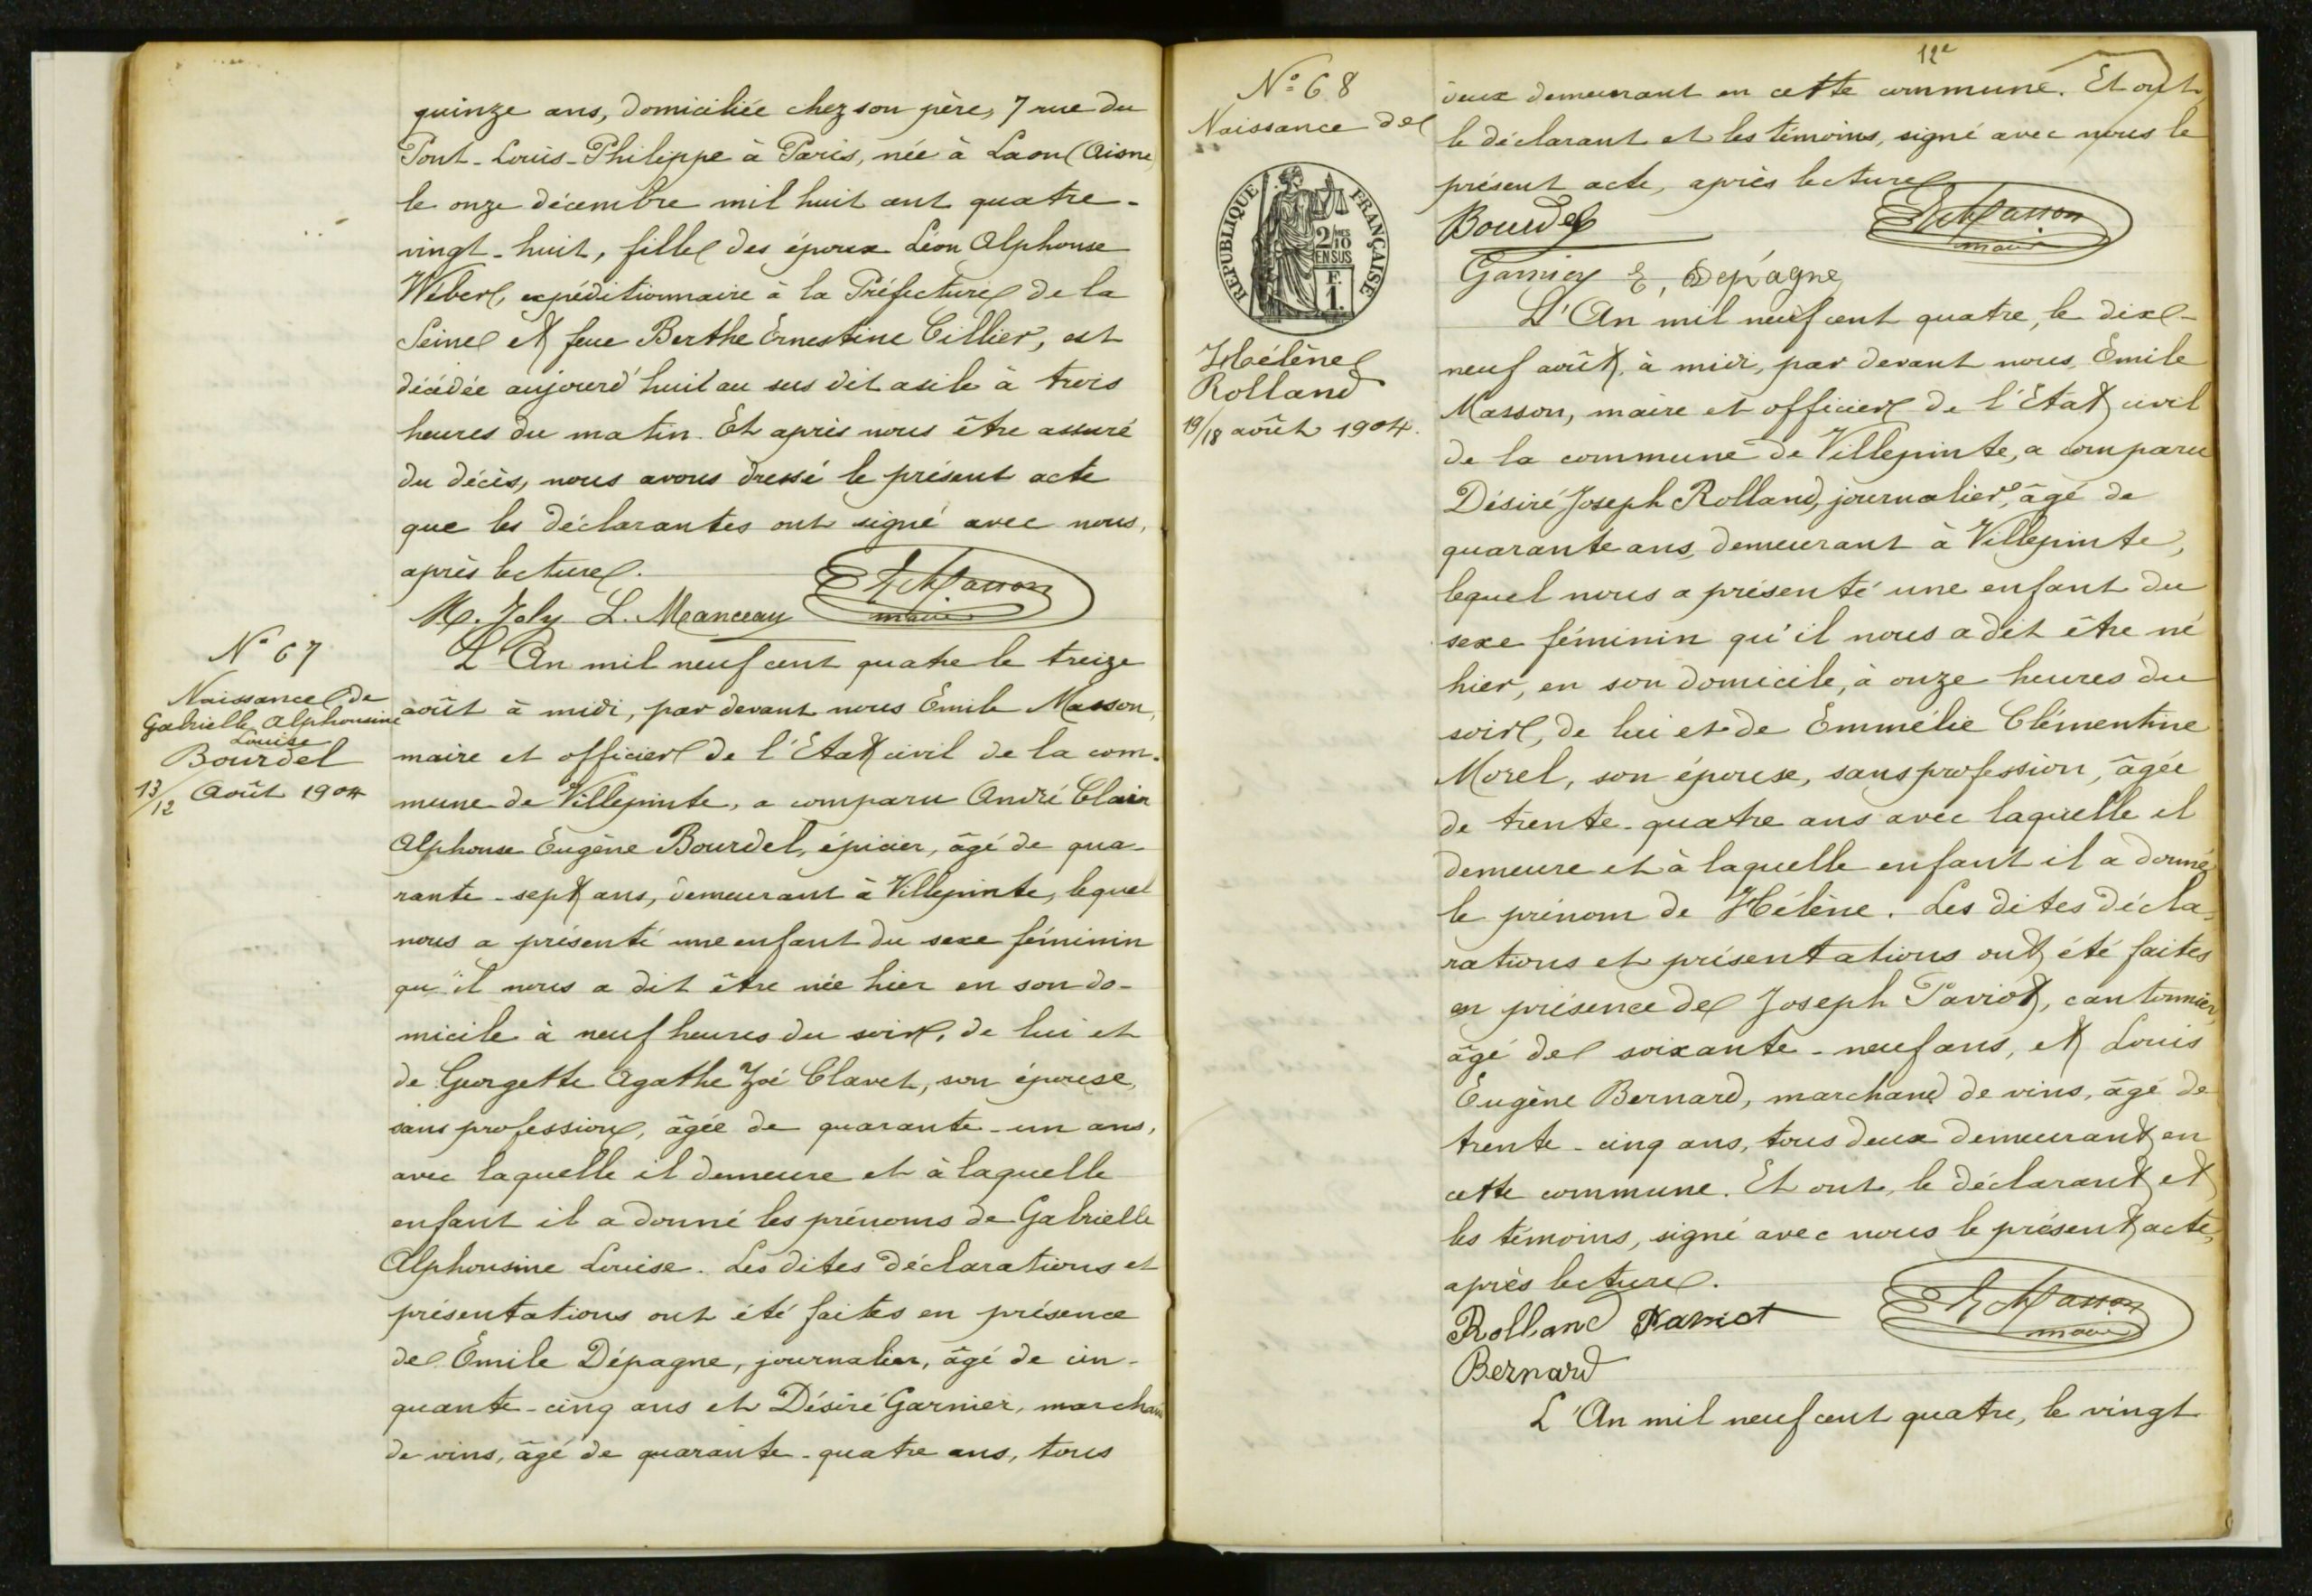 quinze ans, domiciliée chez son père, 7 rue du
Pont-Louis-Philippe à Paris, née à Laon (Aisne
le onze décembre mil huit cent quatre-
vingt-huit, fille des époux Léon Alphonse
Wéber, expéditionnaire à la Préfecture de la
Seine et feue Berthe Ernestine Cillier, est
décédée aujourd'hui au sus dit asile à trois
heures du matin. Et après nous être assuré
du décès, nous avons dressé le présent acte
que les déclarantes ont signé avec nous,
après lecture.
M. Joly L. Manceau E Masson
maire
N° 67
Naissance de
Gabrielle Alphonsine
Louise
Bourdel
13/12 Août 1904
L'An mil neuf cent quatre le treize
août à midi, par devant nous Emile Masson,
maire et officier de l'Etat civil de la com-
mune de Villepinte, a comparu André Clair
Alphonse Eugène Bourdel, épicier, âgé de qua-
rante-sept ans, demeurant à Villepinte, lequel
nous a présenté une enfant du sexe féminin
qu'il nous a dit être née hier en son do-
micile à neuf heures du soir, de lui et
de Georgette Agathe Zoé Clavet, son épouse,
sans profession, âgée de quarante-un ans,
avec laquelle il demeure et à laquelle
enfant il a donné les prénoms de Gabrielle
Alphonsine Louise. Les dites déclarations et
présentations ont été faites en présence
de Emile Dépagne, journalier, âgé de cin-
quante-cinq ans et Désiré Garnier, marchand
de vins, âgé de quarante-quatre ans, tous
12e
deux demeurant en cette commune. Et ont,
le déclarant et les témoins, signé avec nous le
présent acte, après lecture
Bourdel E Masson
maire
Garnier E, Dépagne
N° 68
Naissance de
RÉPUBLIQUE FRANÇAISE
2/10 EN SUS
F. 1.
Hélène
Rolland
19/18 août 1904.
L'An mil neuf cent quatre, le dix-
neuf août, à midi, par devant nous, Emile
Masson, maire et officier de l'Etat civil
de la commune de Villepinte, a comparu
Désiré Joseph Rolland, journalier, âgé de
quarante ans, demeurant à Villepinte,
lequel nous a présenté une enfant du
sexe féminin qu'il nous a dit être né
hier, en son domicile, à onze heures du
soir, de lui et de Emmélie Clémentine
Morel, son épouse, sans profession, âgée
de trente-quatre ans avec laquelle il
demeure et à laquelle enfant il a donné
le prénom de Hélène. Les dites décla-
rations et présentations ont été faites
en présence de Joseph Paviot, cantonnier,
âgé de soixante-neuf ans, et Louis
Eugène Bernard, marchand de vins, âgé de
trente-cinq ans, tous deux demeurant en
cette commune. Et ont, le déclarant et
les témoins, signé avec nous le présent acte,
après lecture.
Rolland Paviot E Masson
maire
Bernard
L'An mil neuf cent quatre, le vingt